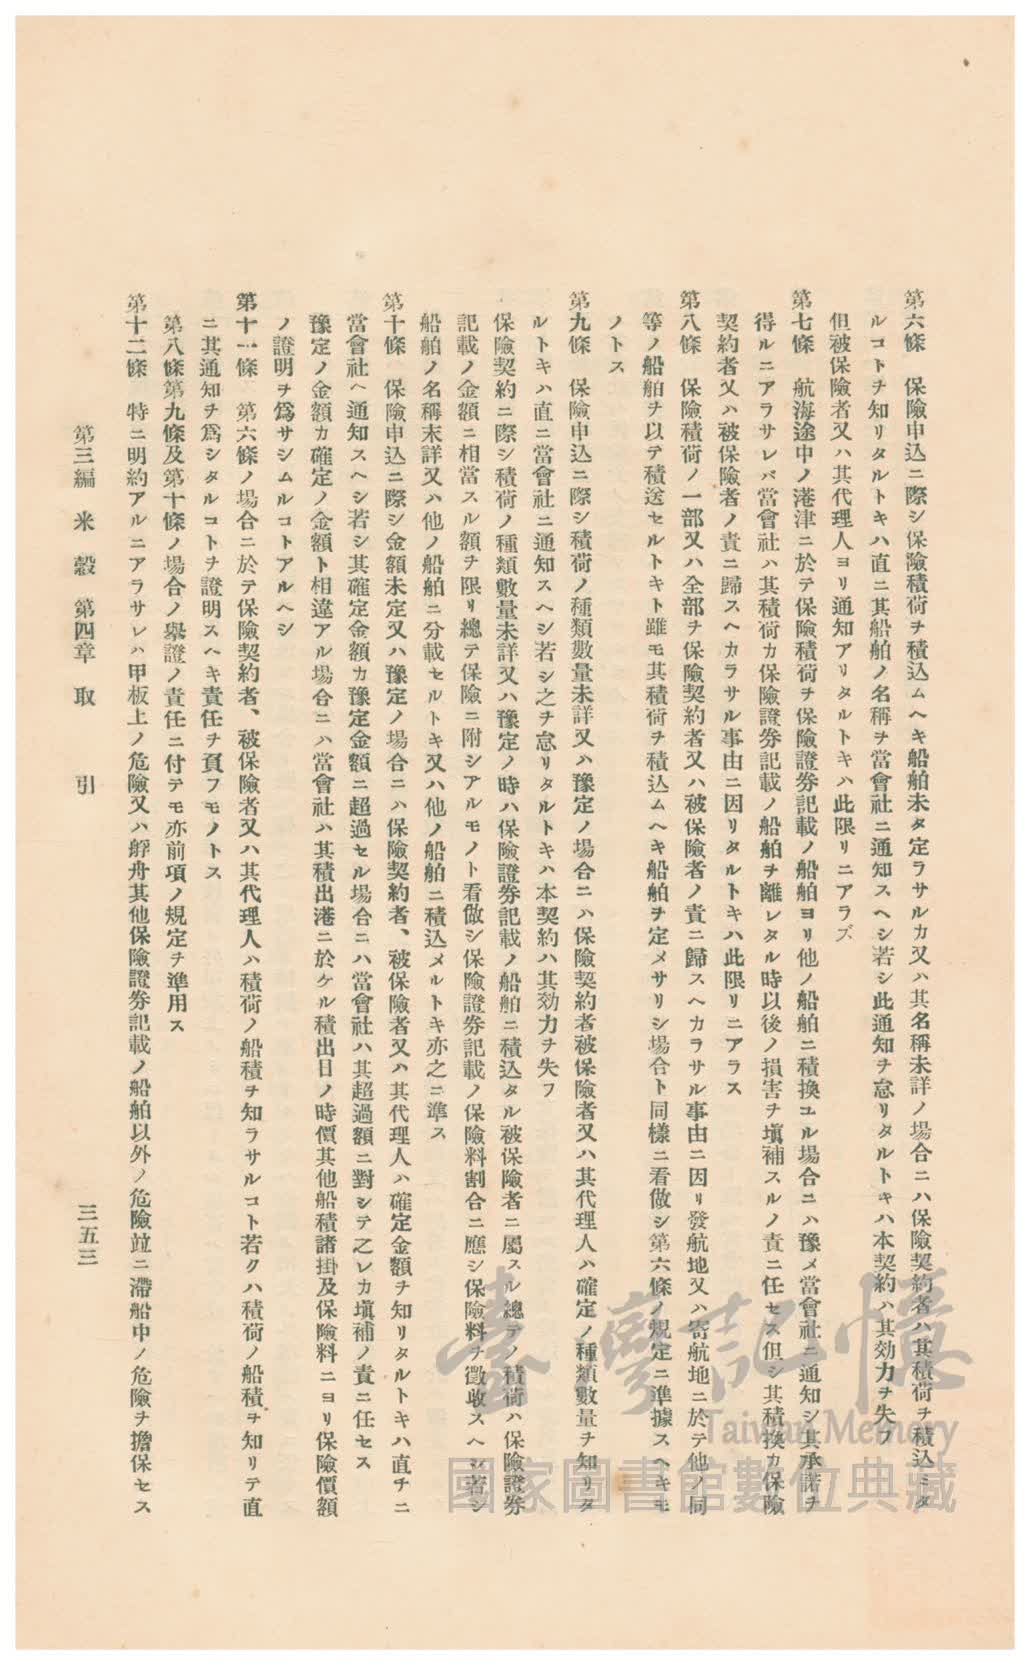 第六條　保險申込ニ際シ保險積荷ヲ積込ムヘキ船舶未タ定ラサルカ又ハ其名稱未詳ノ場合ニハ保險契約者ハ其積荷ヲ積込ミタ
ルコトヲ知リタルトキハ直ニ其船舶ノ名稱ヲ當會社ニ通知スヘシ若シ此通知ヲ怠リタルトキハ本契約ハ其効力ヲ失フ
但被保險者又ハ其代理人ヨリ通知アリタルトキハ此限リニアラズ
第七條　航海途中ノ港津ニ於テ保險積荷ヲ保險證券記載ノ船舶ヨリ他ノ船舶ニ積換ユル場合ニハ豫メ當會社ニ通知シ其承諾ヲ
得ルニアラサレバ當會社ハ其積荷カ保險證券記載ノ船舶ヲ離レタル時以後ノ損害ヲ塡補スルノ責ニ任セス但シ其積換カ保險
契約者又ハ被保險者ノ責ニ歸スヘカラサル事由ニ因リタルトキハ此限リニアラス
第八條　保險積荷ノ一部又ハ全部ヲ保險契約者又ハ被保險者ノ責ニ歸スヘカラサル事由ニ因リ發航地又ハ寄航地ニ於テ他ノ同
等ノ船舶ヲ以テ積送セルトキト雖モ其積荷ヲ積込ムヘキ船舶ヲ定メサリシ場合ト同樣ニ看做シ第六條ノ規定ニ準據スヘキモ
ノトス
第九條　保險申込ニ際シ積荷ノ種類數量未詳又ハ豫定ノ場合ニハ保險契約者被保險者又ハ其代理人ハ確定ノ種類數量ヲ知リタ
ルトキハ直ニ當會社ニ通知スヘシ若シ之ヲ怠リタルトキハ本契約ハ其効力ヲ失フ
保險契約ニ際シ積荷ノ種類數量未詳又ハ豫定ノ時ハ保險證券記載ノ船舶ニ積込タル被保險者ニ屬スル總テノ積荷ハ保險證券
記載ノ金額ニ相當スル額ヲ限リ總テ保險ニ附シアルモノト看做シ保險證券記載ノ保險料割合ニ應シ保險料ヲ徵收スヘシ若シ
船舶ノ名稱未詳又ハ他ノ船舶ニ分載セルトキ又ハ他ノ船舶ニ積込メルトキ亦之ニ準ス
第十條　保險申込ニ際シ金額未定又ハ豫定ノ場合ニハ保險契約者、被保險者又ハ其代理人ハ確定金額ヲ知リタルトキハ直チニ
當會社ヘ通知スヘシ若シ其確定金額カ豫定金額ニ超過セル場合ニハ當會社ハ其超過額ニ對シテ之レカ塡補ノ責ニ任セス
豫定ノ金額カ確定ノ金額ト相違アル場合ニハ當會社ハ其積出港ニ於ケル積出日ノ時價其他船積諸掛及保險料ニヨリ保險價額
ノ證明ヲ爲サシムルコトアルヘシ
第十一條　第六條ノ場合ニ於テ保險契約者、被保險者又ハ其代理人ハ積荷ノ船積ヲ知ラサルコト若クハ積荷ノ船積ヲ知リテ直
ニ其通知ヲ爲シタルコトヲ證明スヘキ責任ヲ負フモノトス
第八條第九條及第十條ノ場合ノ擧證ノ責任ニ付テモ亦前項ノ規定ヲ準用ス
第十二條　特ニ明約アルニアラサレハ甲板上ノ危險又ハ艀舟其他保險證券記載ノ船舶以外ノ危險竝ニ滯船中ノ危險ヲ擔保セス
第三編　米穀　第四章　取引
三五三
臺灣記憶
Taiwan Memory
國家圖書館數位典藏